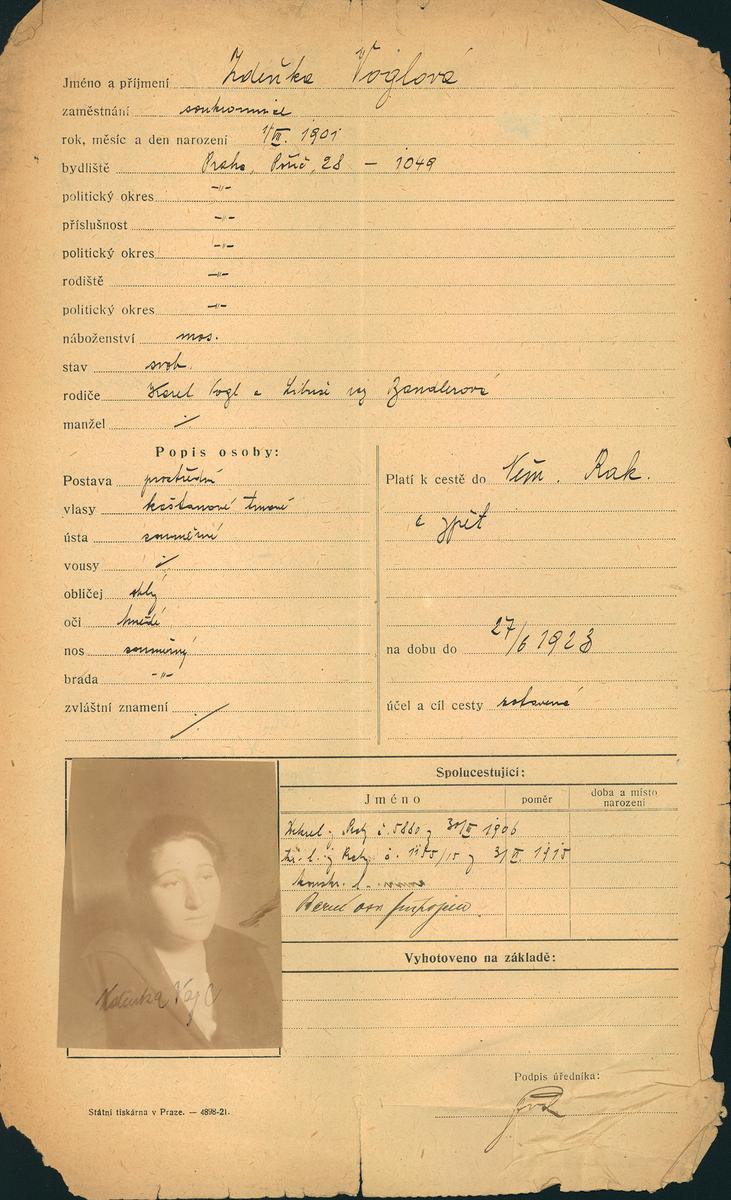 Jméno a příjmení Zdeňka Voglová
zaměstnání soukromnice
rok, měsíc a den narození 1/VII. 1901
bydliště Praha, Poříč, 28 – 1049
politický okres -"-
příslušnost -"-
politický okres -"-
rodiště -"-
politický okres -"-
náboženství mos.
stav svob.
rodiče Karel Vogl a Libuše roz Bandlerová
manžel ⁄
Popis osoby:
Postava prostřední
vlasy kaštanové tmavé
ústa souměrné
vousy ⁄
obličej oblý
oči hnědé
nos souměrný
brada -"-
zvláštní znamení ⁄
Platí k cestě do Něm. Rak.
a zpět
na dobu do 27/6 1923
účel a cíl cesty zotavená
Spolucestující:
Jméno poměr doba a místo narození
č. 5880 z 30/ 1906
č. 1185/15 z 31/ 1915
Vyhotoveno na základě:
Podpis úředníka:
Zdenka Vogl
Státní tiskárna v Praze. — 4898-21.